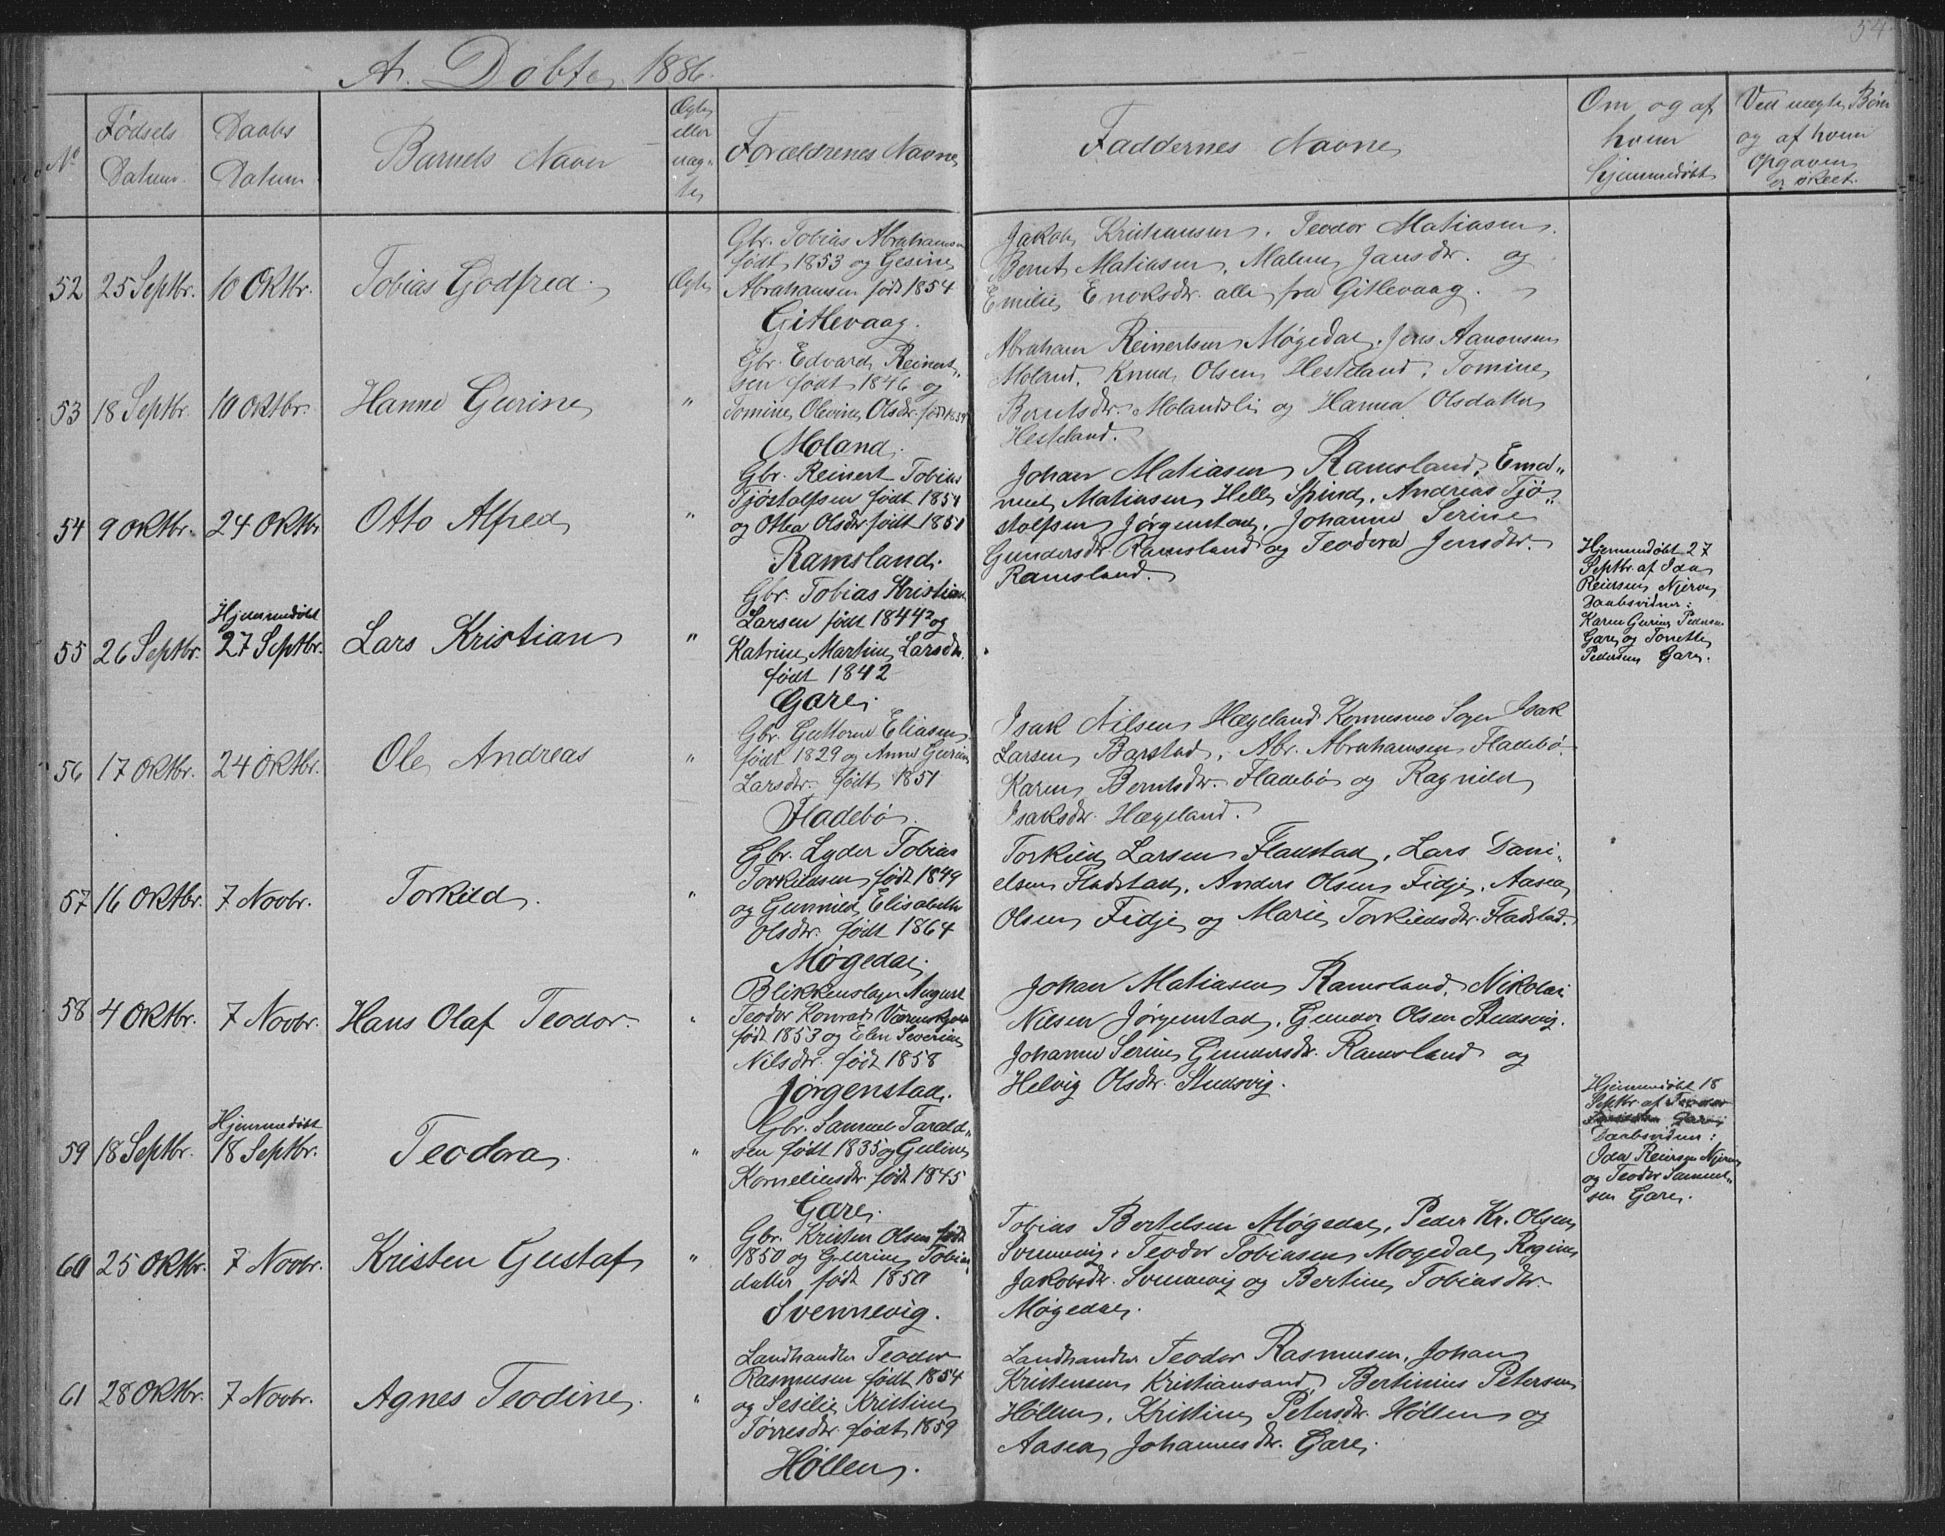 54
A. Døbte 1886.
No
Fødsels Datum.
Daabs Datum
Barnets Navn
Ægte eller uægte
Forældrenes Navne
Faddernes Navne
Om og af hvem hjemmedøbt
Ved uægte Børn og af hvem Opgaven er skeet.
52
25 Septbr.
10 Oktbr.
Tobias Godfred.
Ægte
Gbr. Tobias Abrahamsen
født 1853 og Gesine
Abrahamsen født 1854
Gitlevaag.
Jakob Kristiansen, Teodor Matiasen.
Bernt Matiasen, Malene Jansdtr. og
Emilie Enoksdtr. alle fra Gitlevaag.
53
18 Septbr.
10 Oktbr.
Hanne Gurine
"
Gbr. Edvard Reinert-
sen født 1846 og
Tomine Olevine Olsdtr. født 1859
Moland.
Abraham Reinertsen Møgedal, Jens Aanonsen
Moland, Knud Olsen Hesteland, Tomine
Berntsdtr. Molandsli og Hanna Olsdatter
Hesteland.
54
9 Oktbr.
24 Oktbr
Otto Alfred
"
Gbr. Reinert Tobias
Tjøstolfsen født 1854
og Ottea Olsdtr født 1851
Ramsland.
Johan Matiasen Ramsland, Ema-
nuel Matiasen Helle Spind, Andreas Tjø-
stolfsen Jørgenstad, Johanne Serine
Gundersdtr. Ramsland og Teodora Jensdtr.
Ramsland.
55
26 Septbr.
Hjemmedøbt
27 Septbr.
Lars Kristian
"
Gbr. Tobias Kristian
Larsen født 1844 og
Katrine Martine Larsdtr.
født 1842
Gare.
Hjemmedøbt 27
Septbr. af Ida
Reiersen Njerve
Daabsvidner:
Karen Gurine Pedersen
Gare og Tonette
Pedersen Gare.
56
17 Oktbr.
24 Oktbr.
Ole Andreas
"
Gbr. Guttorm Eliasen
født 1829 og Anne Gurine
Larsdtr. født 1851
Fladebø.
Isak Nilsen Hægeland Konnesmo Sogn Isak
Larsen Barstad, Abr. Abrahamsen Fladebø
Karen Berntsdtr. Fladebø og Ragnild
Isaksdtr. Hægeland.
57
16 Oktbr.
7 Novbr.
Torkild.
"
Gbr. Lyder Tobias
Torkildsen født 1849
og Gunnild Elisabeth
Olsdtr. født 1864
Møgedal.
Torkild Larsen Fladstad, Lars Dani-
elsen Fladstad, Anders Olsen Fidje, Aasea
Olsen Fidje og Marie Torkildsdtr. Fladstad.
58
4 Oktbr.
7 Novbr.
Hans Olaf Teodor.
"
Blikkenslager August
Teodor Konrad
født 1853 og Elen Severine
Nilsdtr. født 1858
Jørgenstad.
Johan Matiasen Ramsland, Nikolai
Nilsen Jørgenstad, Gunder Olsen Studsvig.
Johanne Serine Gundersdtr. Ramsland og
Helvig Olsdtr. Studsvig.
59
18 Septbr.
Hjemmedøbt
18 Septbr.
Teodora.
"
Gbr. Samuel Tarald-
sen født 1835 og Guline
Korneliusdtr. født 1845
Gare.
Hjemmedøbt 18
Septbr. af Teodor
Gare
Daabsvidner:
Ida Reiersen Njerve
og Teodor Samuel-
sen Gare.
60
25 Oktbr.
7 Novbr.
Kristen Gustaf
"
Gbr. Kristen Olsen født
1850 og Gurine Tobias
datter født 1850
Svennevig.
Tobias Bertelsen Møgedal, Peder Kr. Olsen
Svennevig, Teodor Tobiasen Møgedal, Regine
Jakobsdtr. Svennevig og Bertine Tobiasdtr.
Møgedal.
61
28 Oktbr.
7 Novbr.
Agnes Teodine.
"
Landhandler Teodor
Rasmusen født 1854
og Sesilie Kristine
Tørresdtr. født 1859
Høllen.
Landhandler Teodor Rasmusen, Johan
Kristensen Kristiansand, Bertinius Petersen
Høllen, Kristine Petersdtr. Høllen og
Aasea Johannesdtr. Gare.